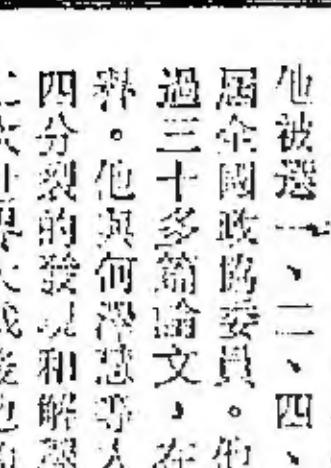 他被選一、二、四、
屆全國政協委員。他
過三十多篇論文，在
界。他與何澤慧等人
四分裂的發現和解釋
二次世界大戰後